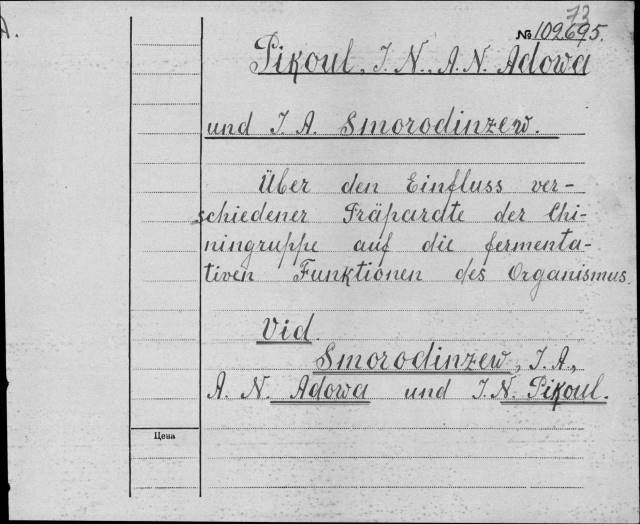 A.
73
№ 102695.
Pikoul, J. N., A. N. Adowa
und J. A. Smorodinzew.
Über den Einfluss ver-
schiedener Präparate der Chi-
ningruppe auf die fermenta-
tiven Funktionen des Organismus.
Vid
Smorodinzew, J. A.,
A. N. Adowa und J. N. Pikoul.
Цена